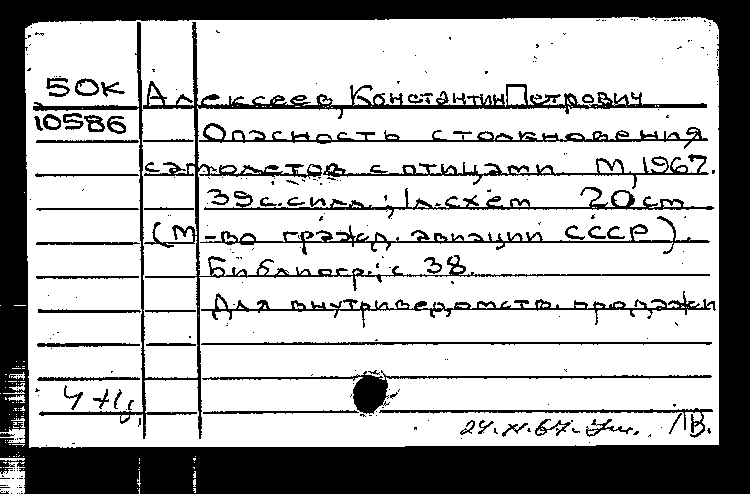 50К Алексеев, Константин Петрович
10586 Опасность столкновения
самолетов с птицами. М, 1967.
39 с. с илл.; 1 л. схем 20 см.
(М-во гражд. авиации СССР).
Библиогр.: с 38.
Для внутриведомств. продажи